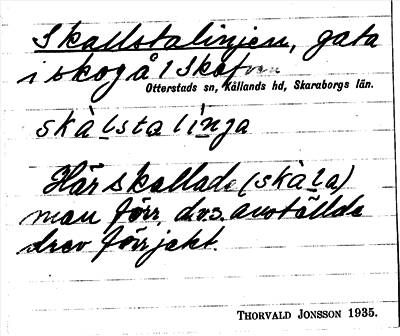 Skallstalinjen, gata
i skog å 1 Skof
Otterstads sn, Kållands hd, Skaraborgs län.
skàlsta li̇̀nja
Här skallade (skàla)
man förr, d.v.s. anställde
drev förr jakt.
THORVALD JONSSON 1935.